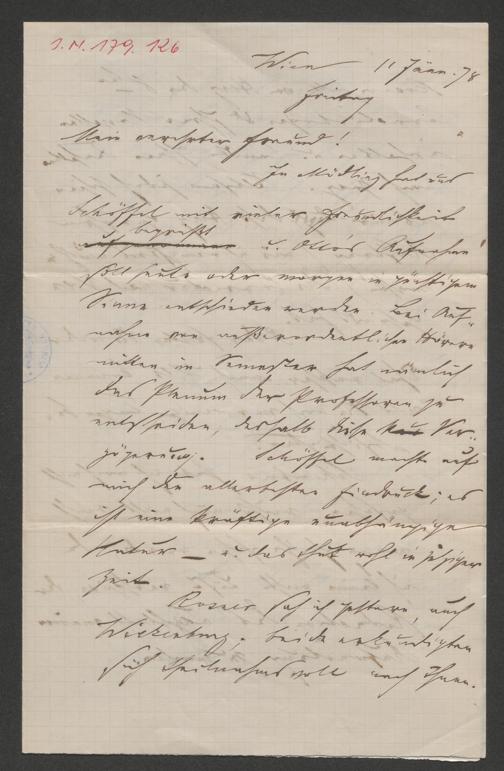 I.N. 179.126
Wien 11 Jänn. 78
Freitag
Mein verehrter Freund!
In Mödling hat uns
Schöffel mit vieler Freundlichkeit
begrüßt
aufgenommen u. Otto's Aufnahme
soll heute oder morgen in günstigem
Sinne entschieden werden. Bei Auf-
nahme von außerordentlichen Hörern
mitten im Semester hat nämlich
das Plenum der Professoren zu
entscheiden, deshalb diese Ver-
zögerung. Schöffel machte auf
mich den allerbesten Eindruck; es
ist eine kräftige unabhängige
Natur – u. das thut wohl in jetziger
Zeit
Rosner sah ich gestern, auch
Wickenburg. beide erkundigten
sich theilnahmsvoll nach Ihnen.